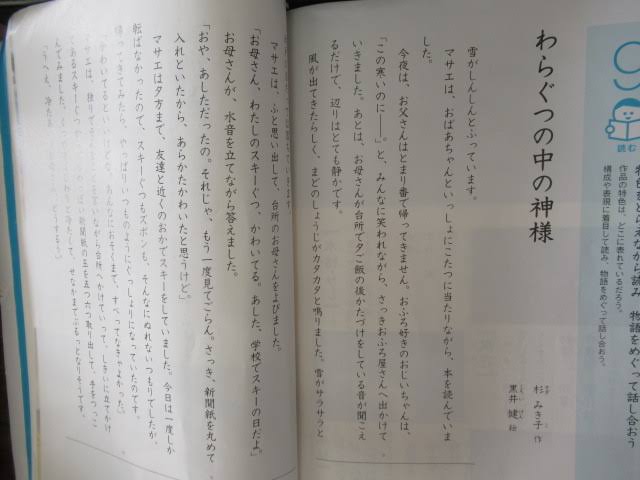 9
読む
特色をとらえながら読み 物語をめぐって話し合おう
作品の特色は、どこに表れているだろう。
構成や表現に着目して読み、物語をめぐって話し合おう。
わらぐつの中の神様
杉 みき子 作
黒井 健 絵
雪がしんしんとふっています。
マサエは、おばあちゃんといっしょにこたつに当たりながら、本を読んでいま
した。
今夜は、お父さんはとまり番で帰ってきません。おふろ好きのおじいちゃんは、
「この寒いのに――。」と、みんなに笑われながら、さっきおふろ屋さんへ出かけて
いきました。あとは、お母さんが台所で夕ご飯の後かたづけをしている音が聞こえ
るだけで、辺りはとても静かです。
風が出てきたらしく、まどのしょうじがカタカタと鳴りました。雪がサラサラと
マサエは、ふと思い出して、台所のお母さんをよびました。
「お母さん、わたしのスキーぐつ、かわいてる。あした、学校でスキーの日だよ。」
お母さんが、水音を立てながら答えました。
「おや、あしただったの。それじゃ、もう一度見てごらん。さっき、新聞紙を丸めて
入れといたから、あらかたかわいたと思うけど。」
マサエは夕方まで、友達と近くのおかでスキーをしていました。今日は一度しか
転ばなかったので、スキーぐつもズボンも、そんなにぬれないつもりでしたが、
帰ってきてみたら、やっぱりいつものようにぐっしょりになっていたのです。